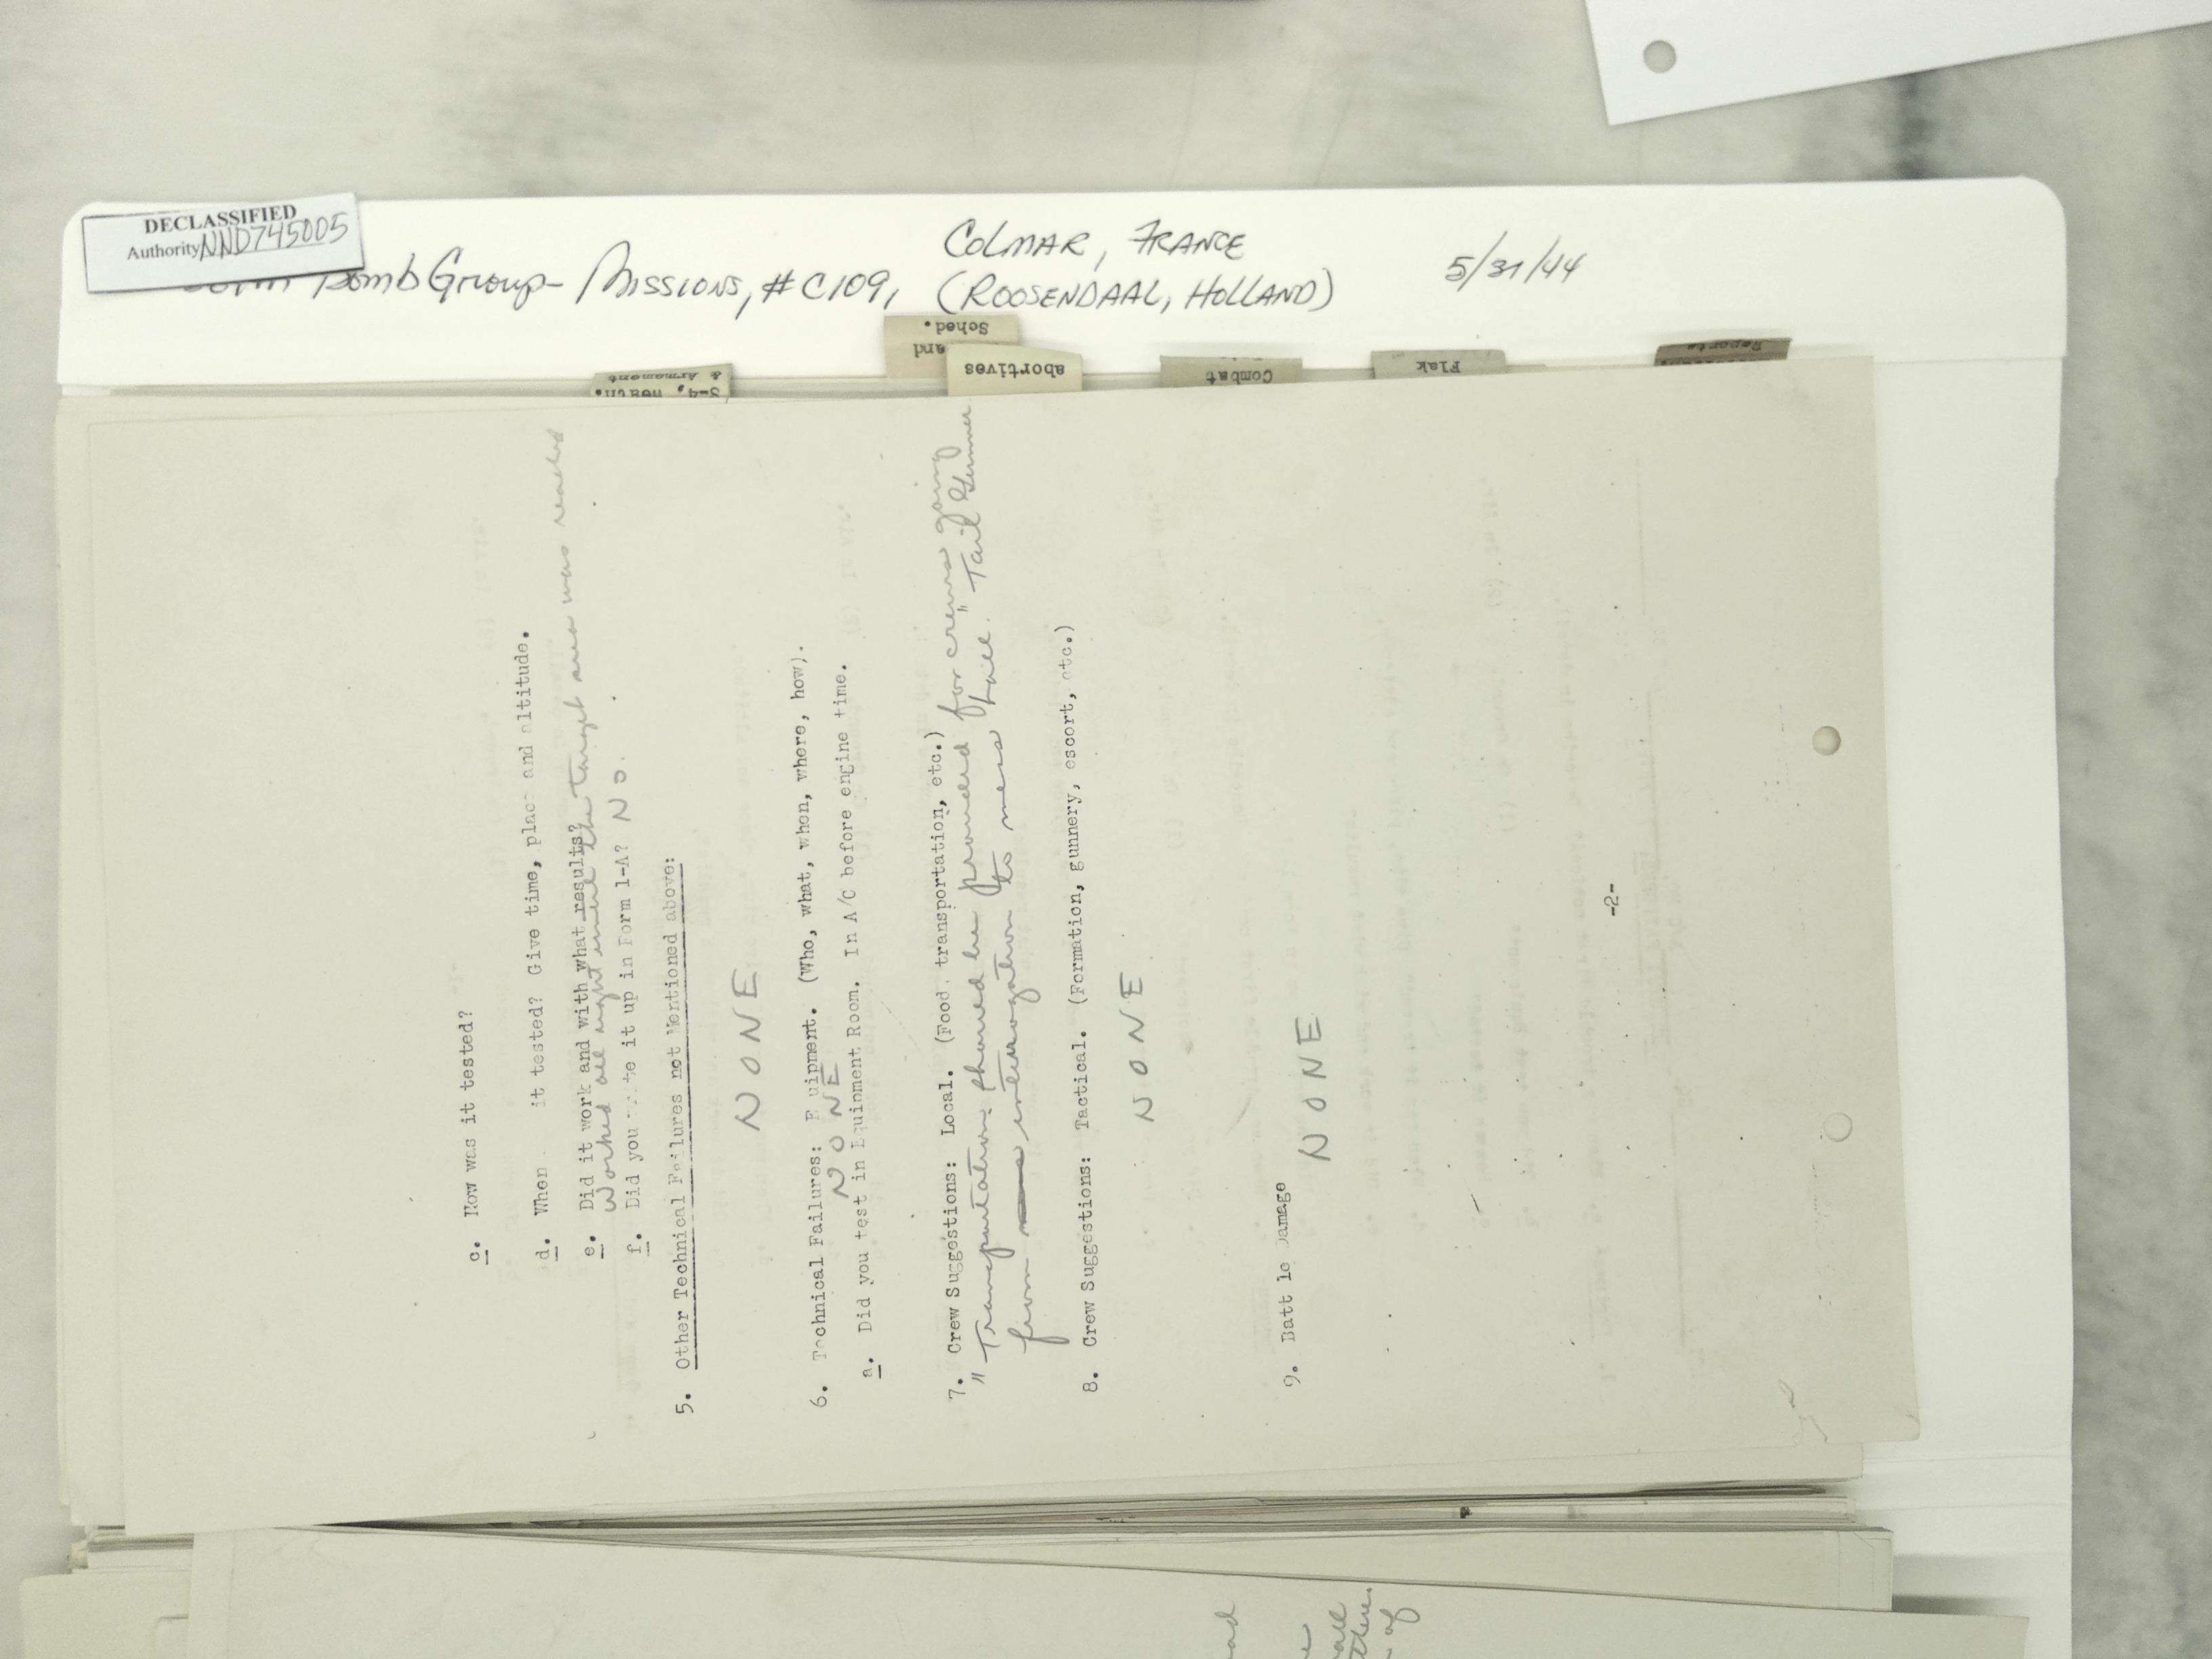 DECLASSIFIED
Authority NND745005
Bomb Group - Missions, #C109,
COLMAR, FRANCE
(ROOSENDAAL, HOLLAND)
5/31/44
Sched.
and
abortives
Combat
Flak
Reports
S-4,
& Armament
c. How was it tested?
d. When it tested? Give time, place and altitude.
e. Did it work and with what results?
Worked all right until the target area was reached
f. Did you te it up in Form 1-A? No.
5. Other Technical Failures not Mentioned above:
NONE
6. Technical Failures: E uipment. (Who, what, when, where, how).
NONE
a. Did you test in Equipment Room. In A/C before engine time.
7. Crew Suggestions: Local. (Food, transportation, etc.)
"Transportation should be provided for crews going
from interrogation to mess hall." Tail Gunner
8. Crew Suggestions: Tactical. (Formation, gunnery, escort, etc.)
NONE
9. Batt le Damage
NONE
-2-
of